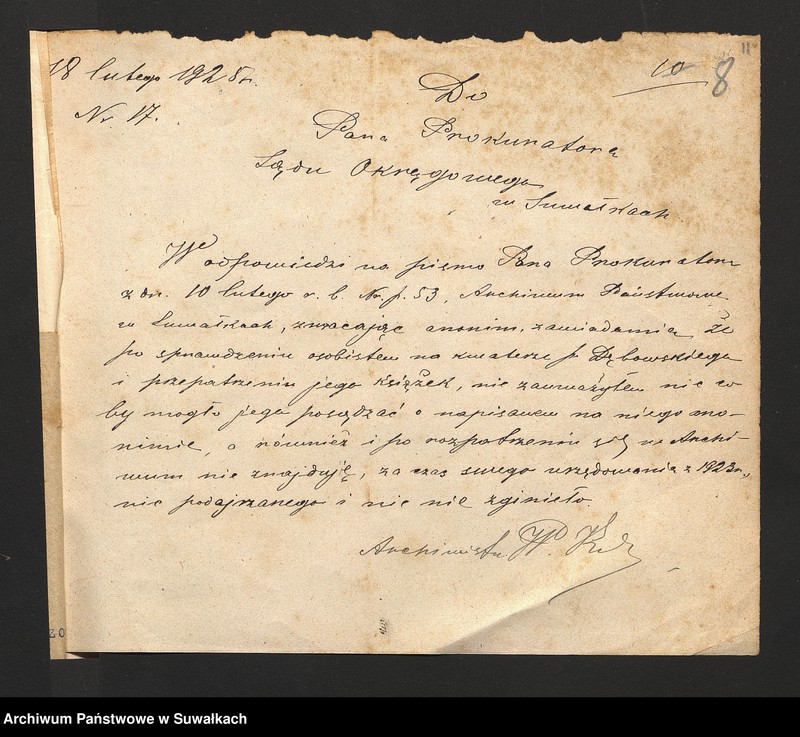 11
18 lutego 1925 r.
10 8
Nr. 17.
Do
Pana Prokuratora
Sądu Okręgowego
w Suwałkach
W odpowiedzi na pismo Pana Prokuratora
z dn. 10 lutego r. b. Nr. p. 53, Archiwum Państwowe
w Suwałkach, zwracając anonim, zawiadamia, że
po sprawdzeniu osobistem na kwaterze p. Dębowskiego
i przepatrzeniu jego książek, nie zauważyłem nic co
by mogło jego posądzać o napisaniu na niego ano-
nimie, a również i po rozpatrzeniu się w Archi-
wum nie znajduję, za czas swego urzędowania z 1923 r.,
nic podajrzanego i nic nie zginieło.
Archiwista W.
ZO
Archiwum Państwowe w Suwałkach